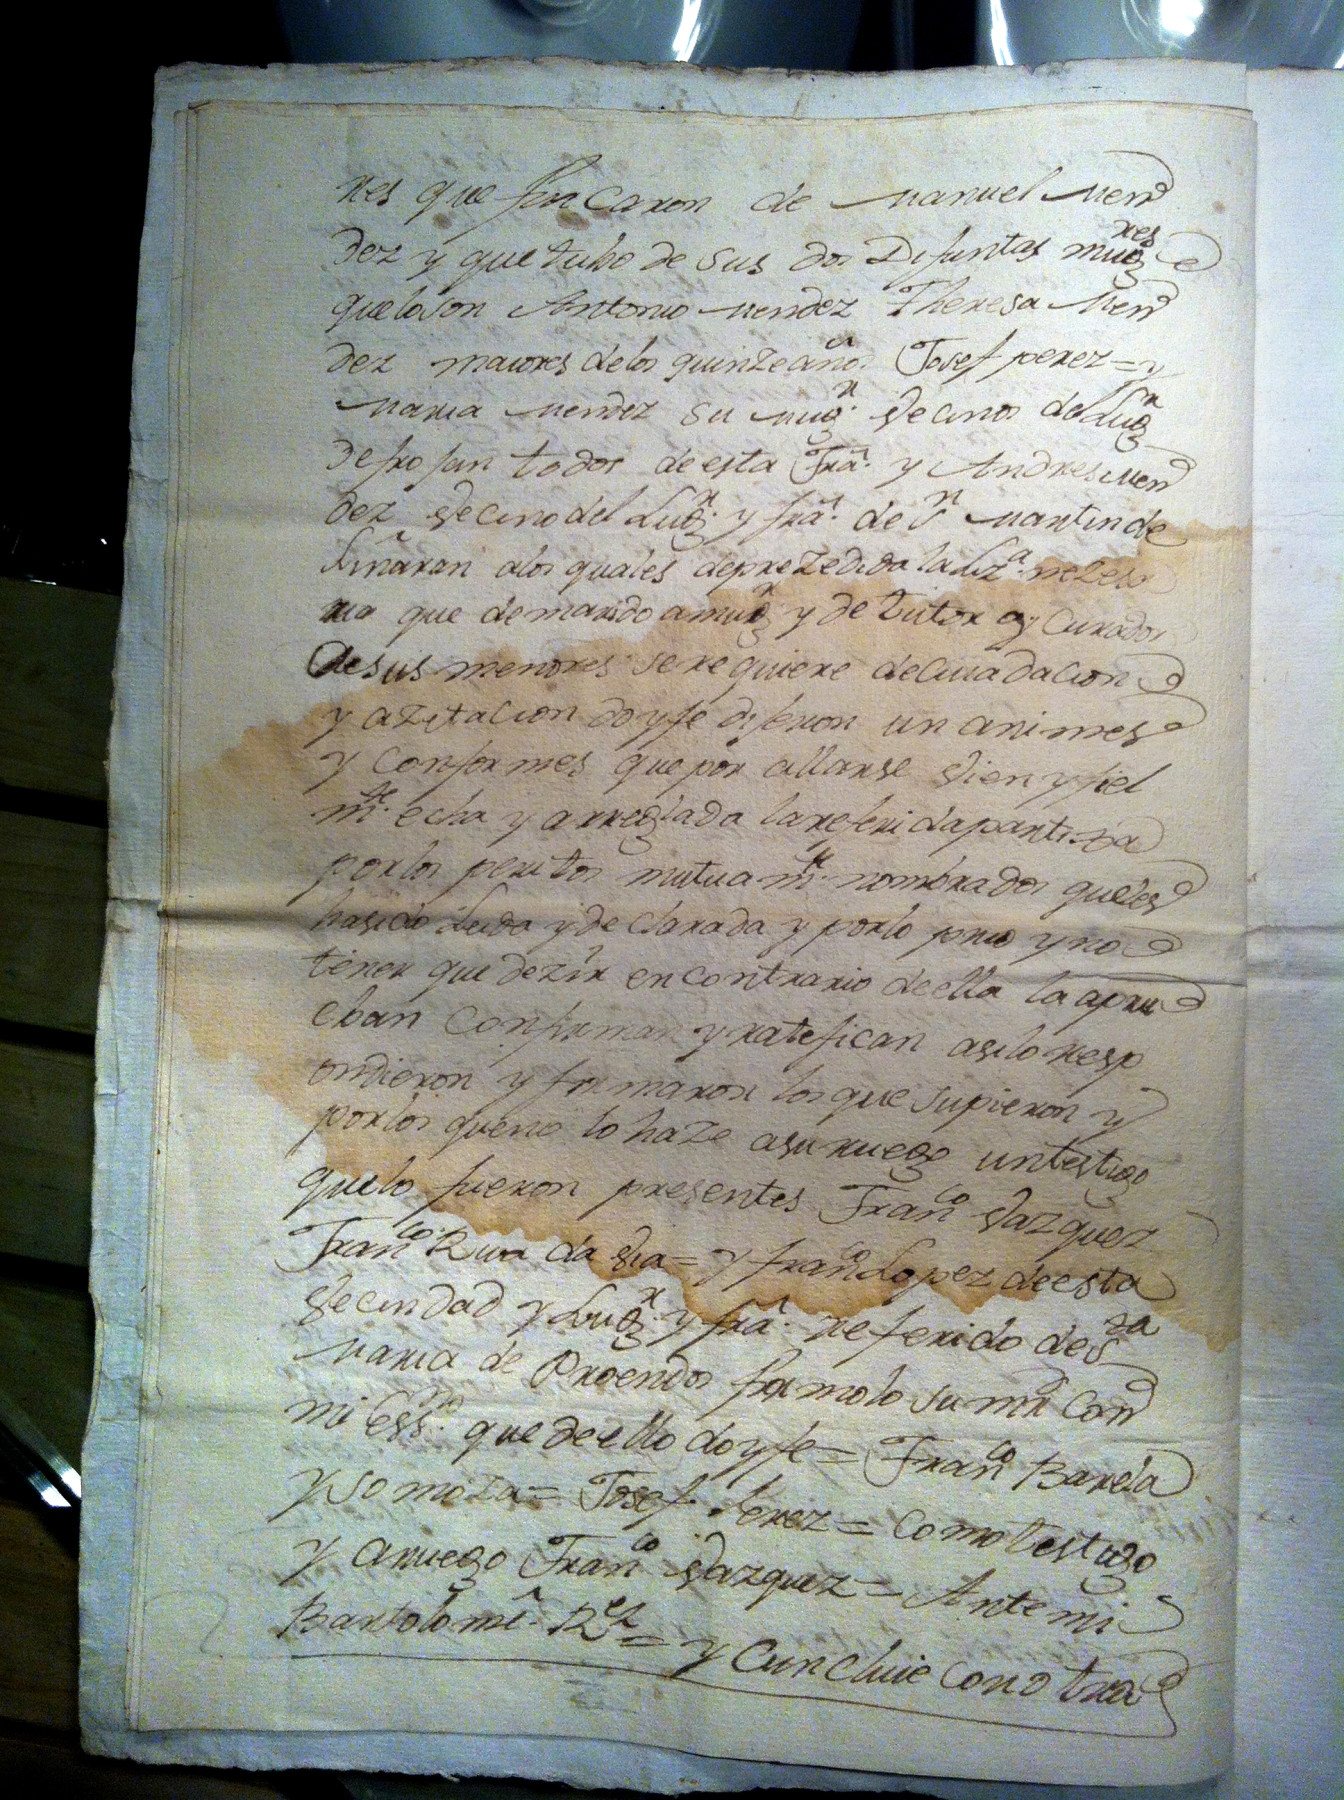 res que fin Caron de Manuel Men
dez y que tubo de sus dos Difuntas mugres
que lo son Antonio Mendez Theresa Men
dez maiores de los quinze años Josef perez = y
Maria Mendez su mugr vecinos del Lugr
de frojan todos de esta Fra. y Andres Men
dez vecino del Lugr. y fra. de Sn Martin de
Liñaran a los quales deprezedida la Liza. nezesa
ria que de marido a mugr y de tutor y Curador
de sus menores se requiere
y azetacion doy fe dijeron un animes
y Conformes que por allarse vien y fiel
mte. echa y arreglada la referida partiza
por los peritos mutuamte. nombrados que les
ha sido Leida y de clarada y por lo prio y no
tener que dezir en contrario de ella la apru
eban Confirman y ratefican asi lo resp
ondieron y firmaron los que supieron y
por los que no lo haze a su ruego un testigo
que lo fueron presentes Franco Vazquez
Franco Riva da Via = y franco Lopez de esta
vecindad y Lugr. y fra. referido de Sta
Maria de Proendos firmolo su mrd Con
mi Essno. que de ello doy fe = Franco Barela
y Somoza = Josef Perez = Como testigo
y a ruego Franco Vazquez = Ante mi
Bartolome Rez = y Cuncluie Con otra